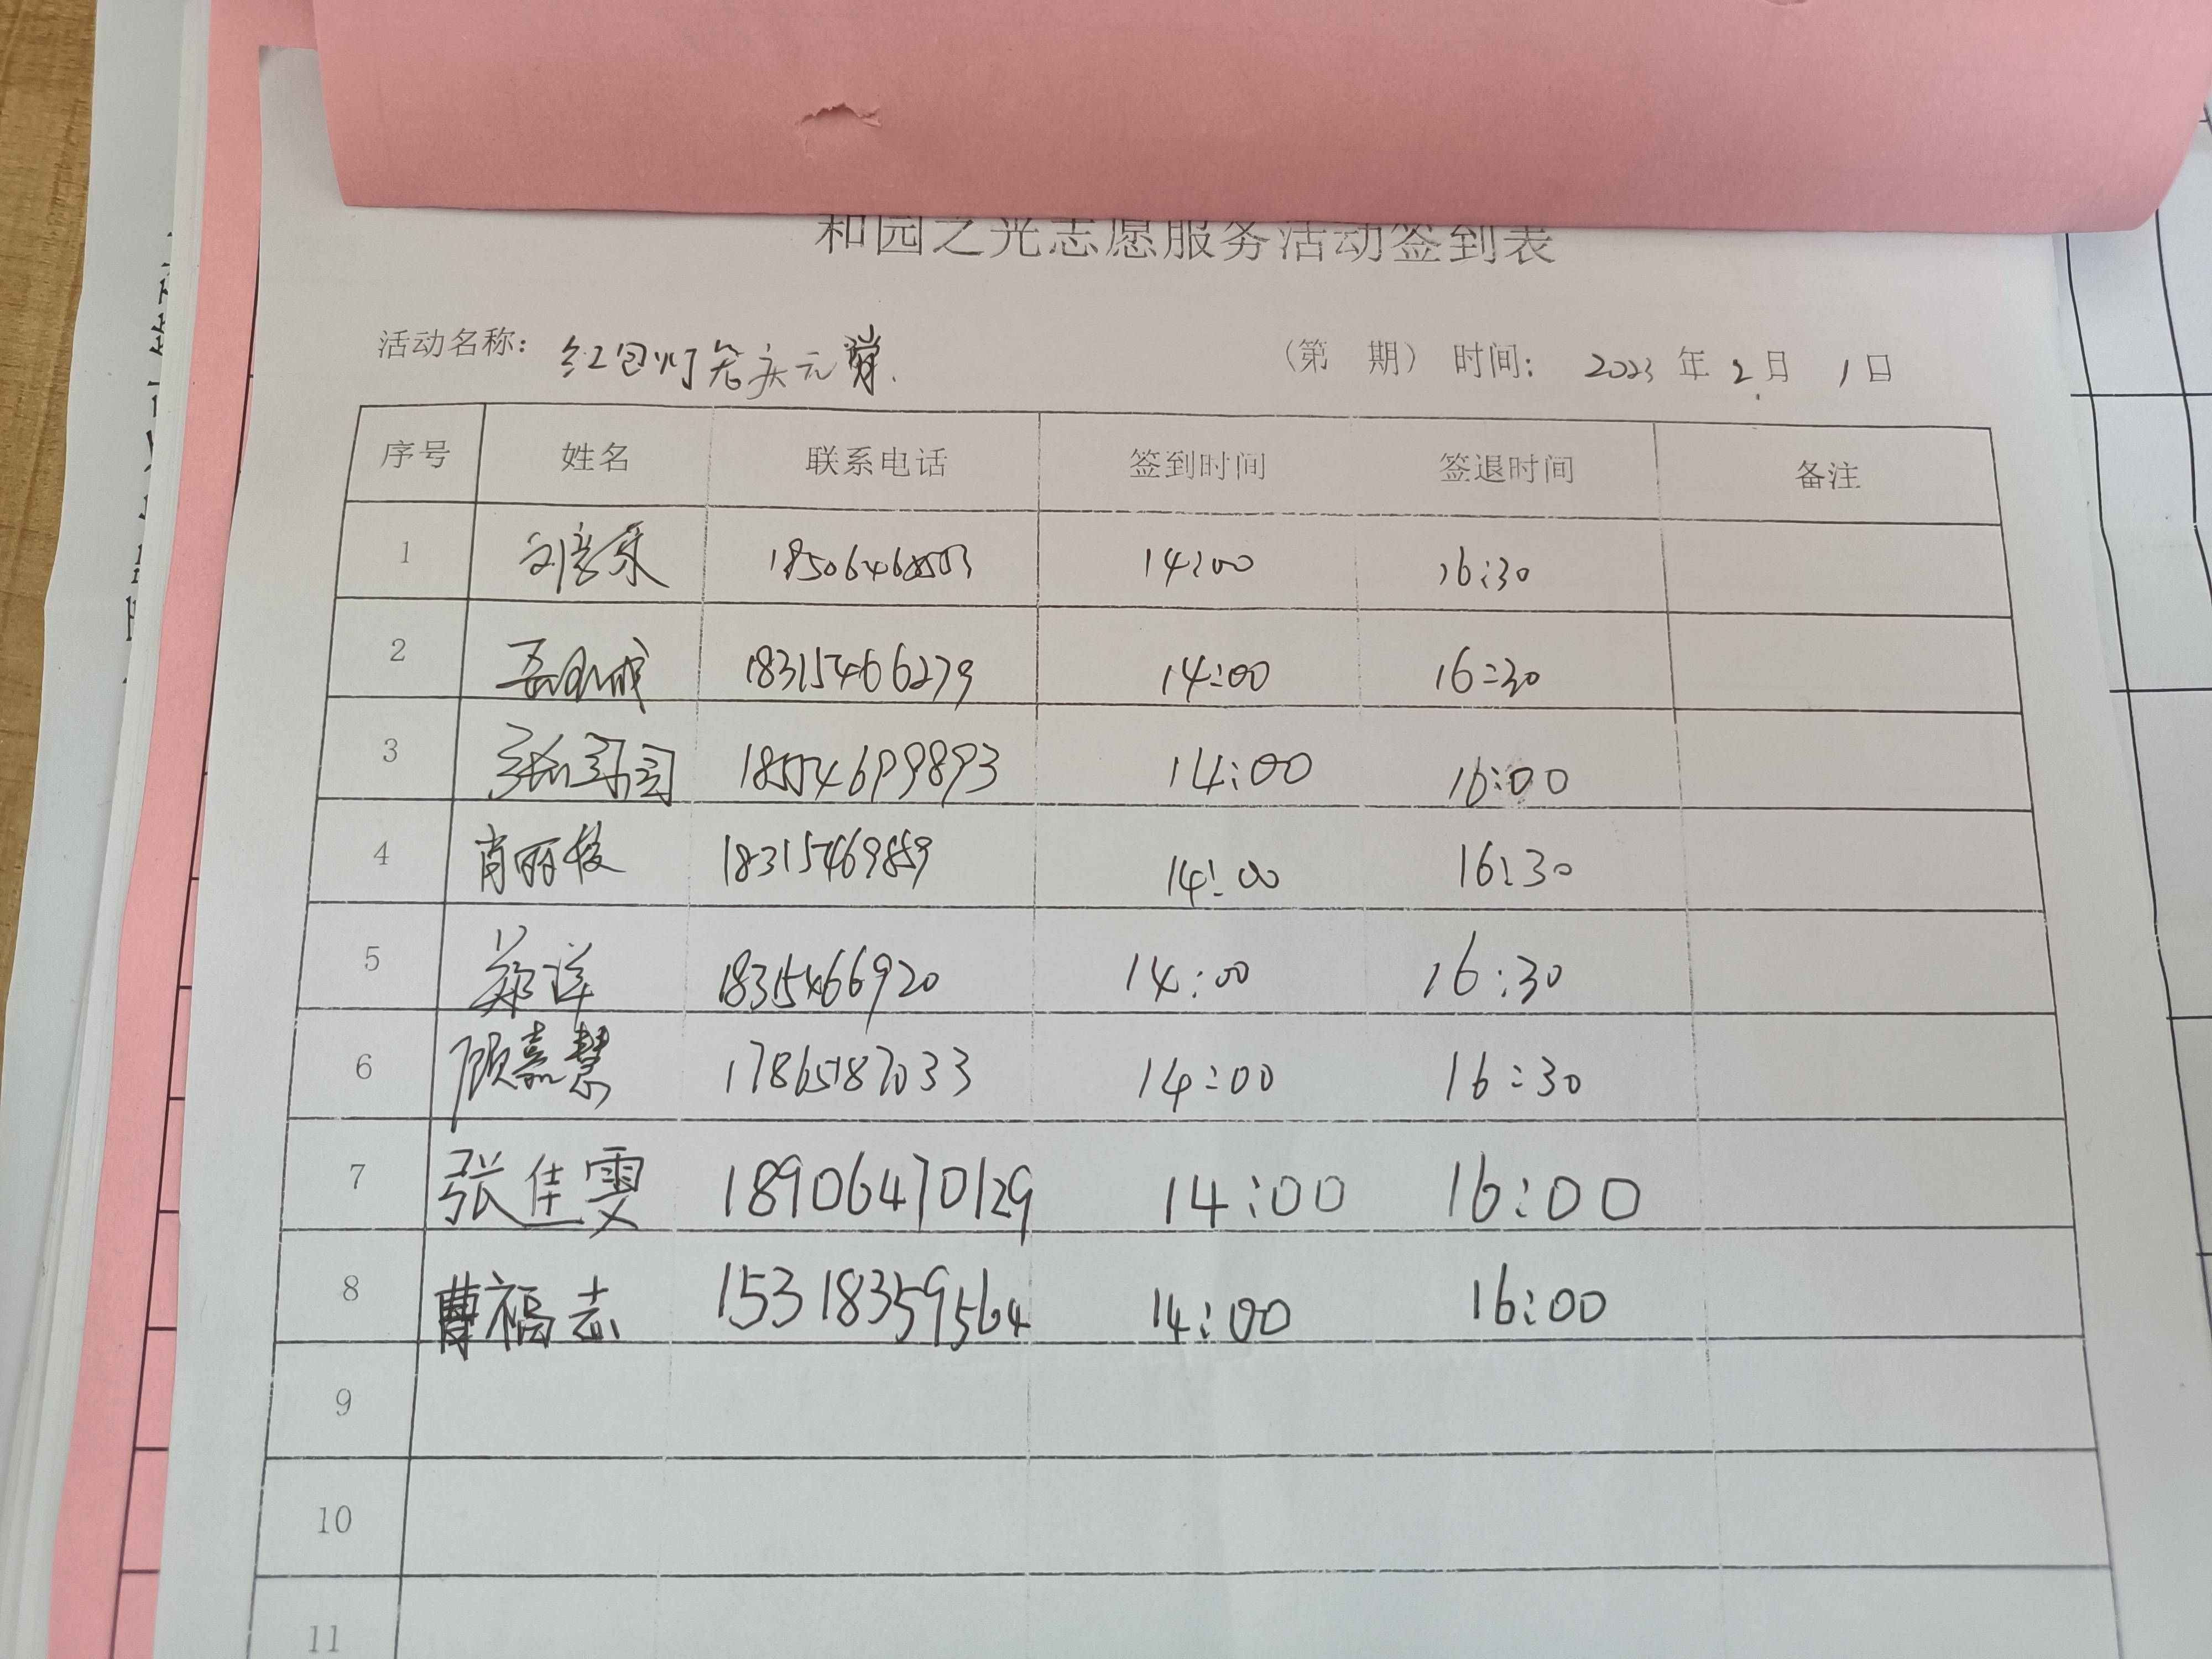 和园之光志愿服务活动签到表
活动名称: 红包灯笼庆元宵. (第 期) 时间: 2023 年 2 月 1 日
序号 姓名 联系电话 签到时间 签退时间 备注
1 14:00 16:30
2 18315466279 14:00 16:30
3 18554699893 14:00 16:00
4 肖丽俊 18315469859 14:00 16:30
5 郑洋 18315466920 14:00 16:30
6 顾嘉慧 17865187033 14:00 16:30
7 张佳雯 18906470129 14:00 16:00
8 曹福志 15318359564 14:00 16:00
9
10
11